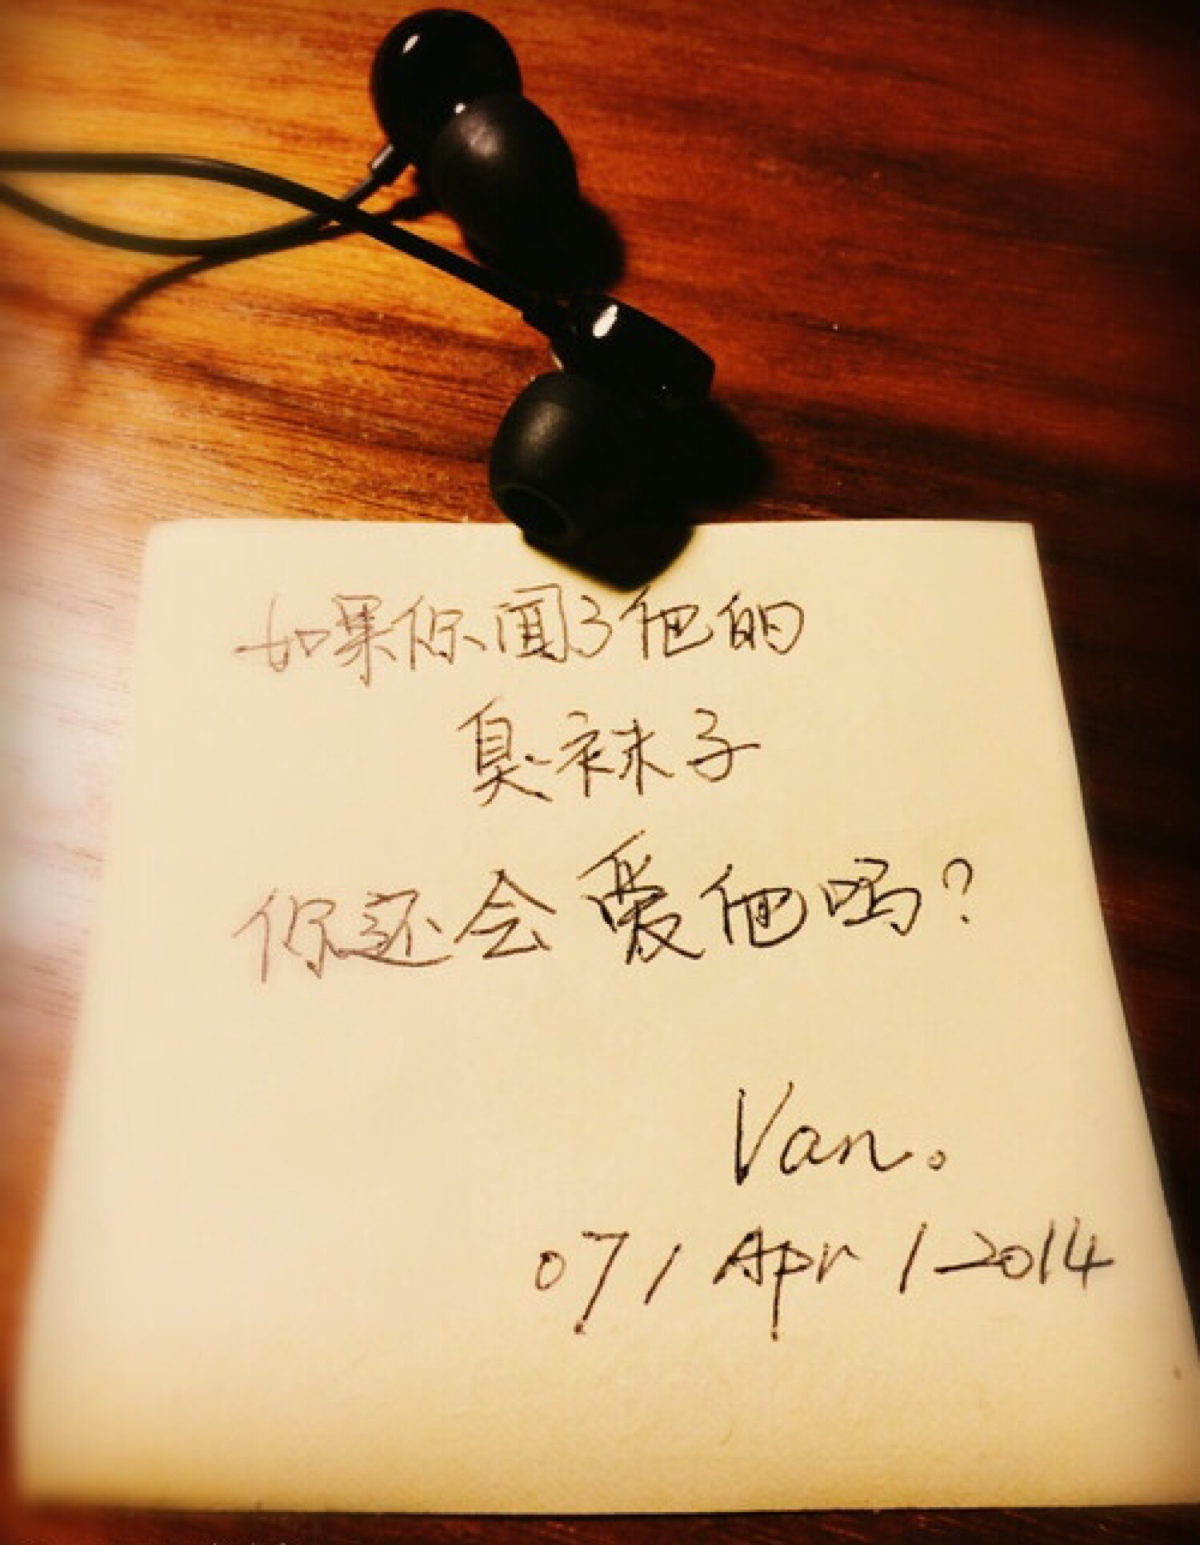 如果你闻了他的
臭袜子
你还会爱他吗?
Van。
07/Apr/2014